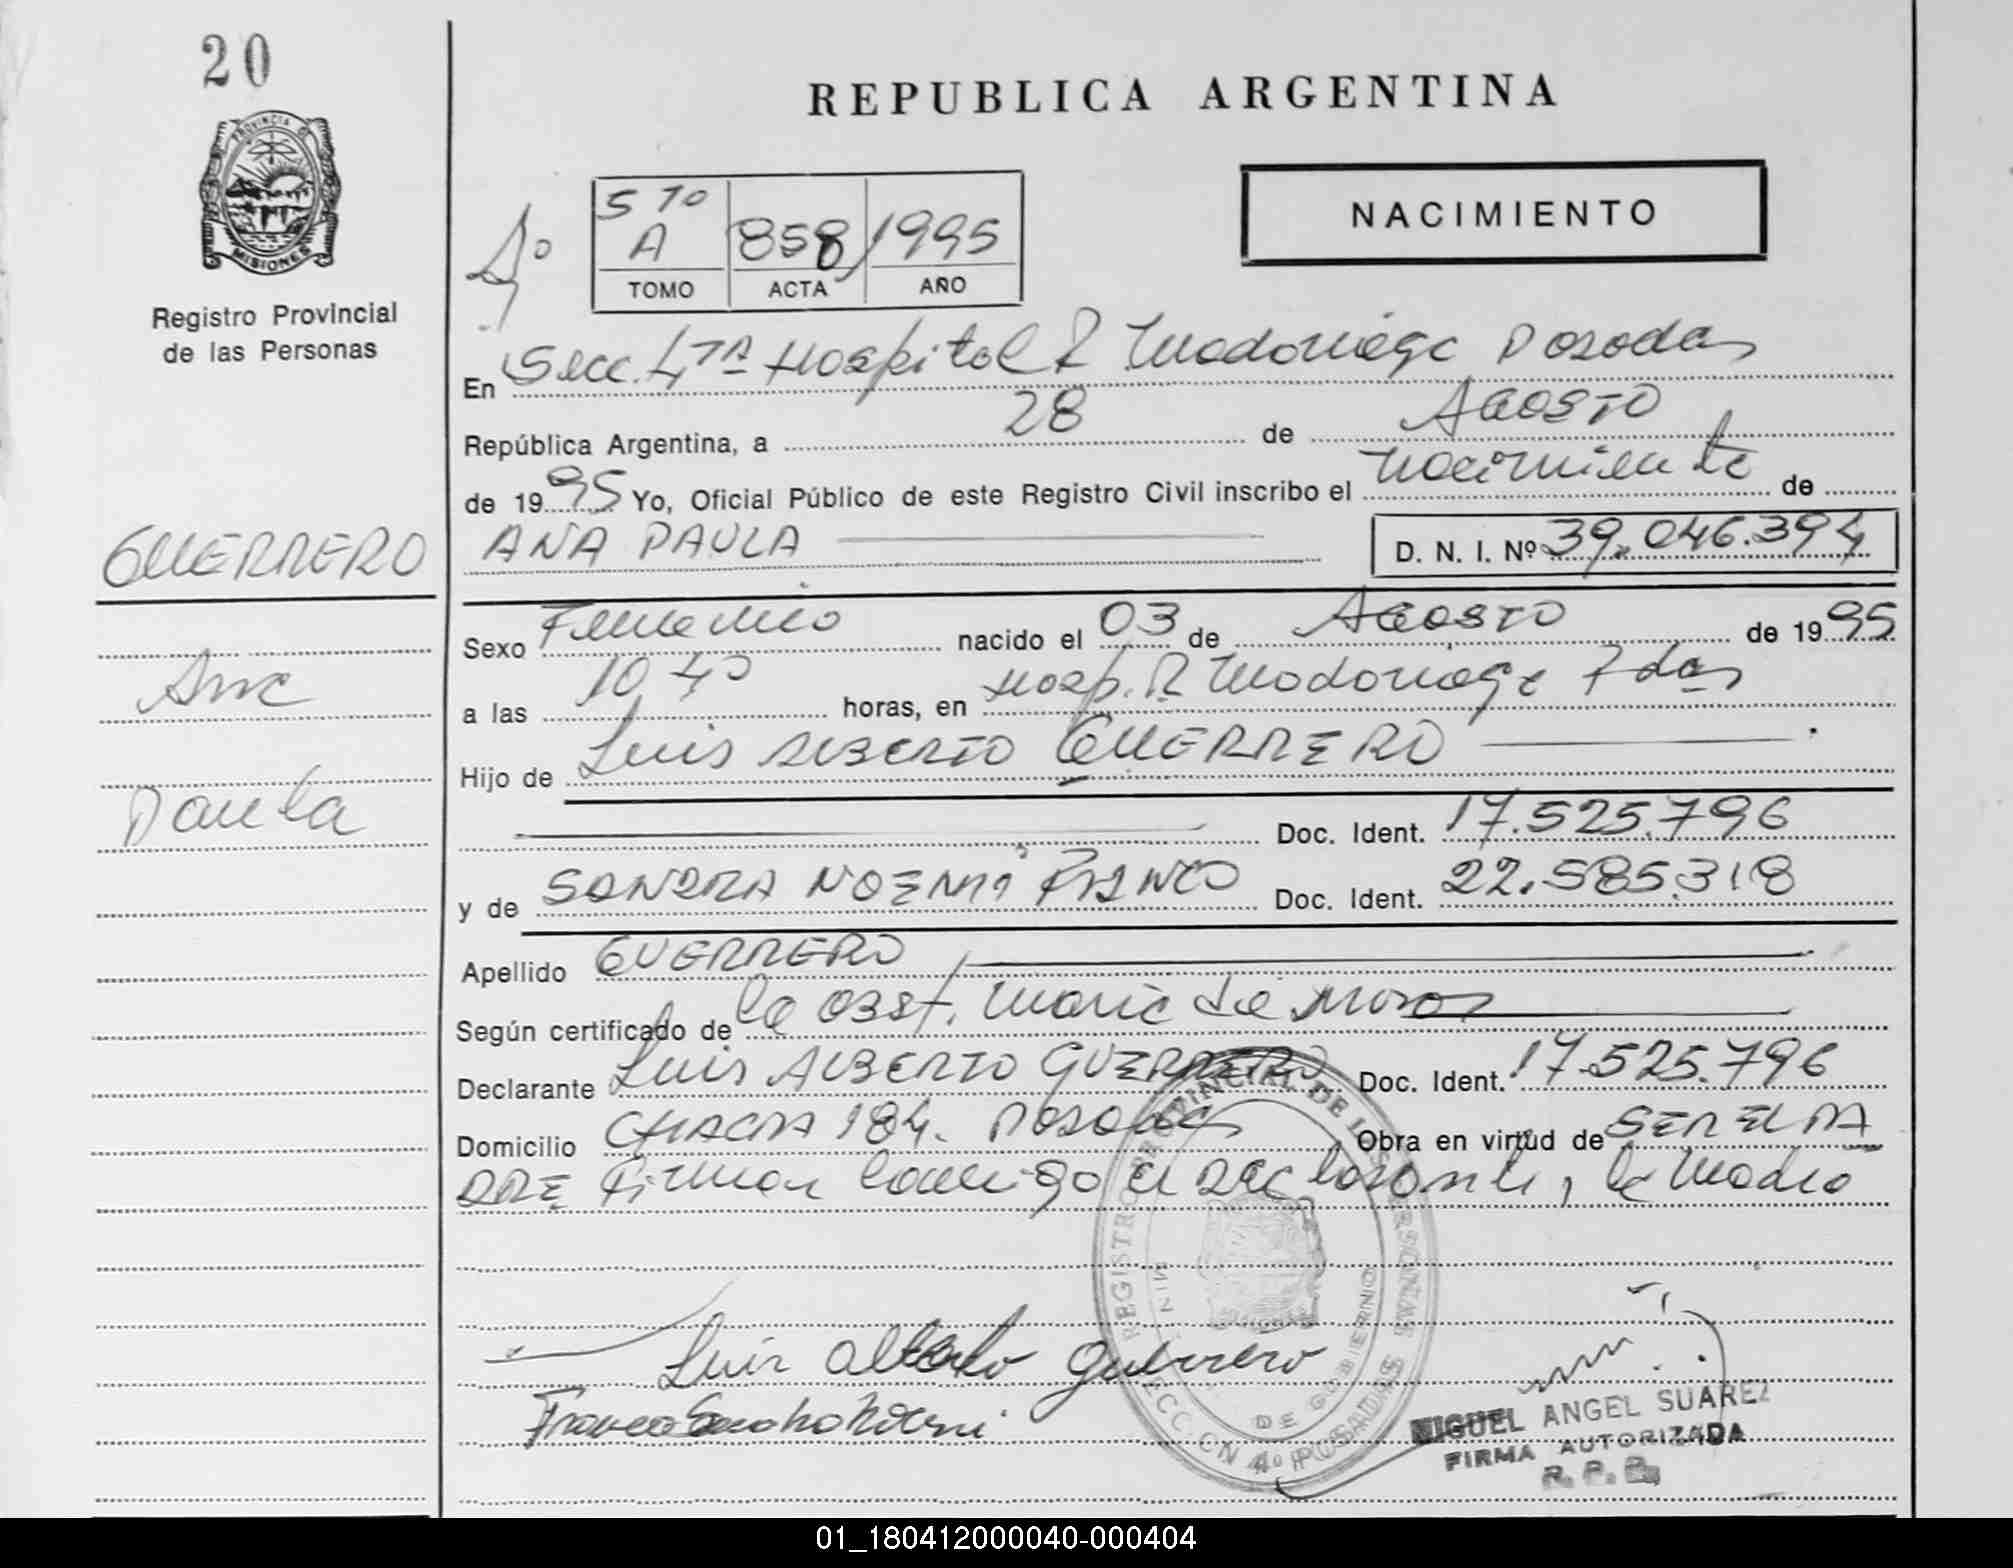 20
REPUBLICA ARGENTINA
PROVINCIA DE
MISIONES
Registro Provincial
de las Personas
4º
5 TO A 858 1995
TOMO ACTA AÑO
NACIMIENTO
En Secc. 4TA Hospital R Madariaga Posadas
República Argentina, a 28 de AGOSTO
de 1995 Yo, Oficial Público de este Registro Civil inscribo el nacimiento de
GUERRERO
ANA PAULA
D. N. I. Nº 39.046.394
Sexo Femenino nacido el 03 de AGOSTO de 1995
Ana
a las 10 40 horas, en Hosp. R Madariaga Pdas
Hijo de Luis ALBERTO GUERRERO
Paula
Doc. Ident. 17.525.796
y de SANDRA NOEMI FRANCO Doc. Ident. 22.585.318
Apellido GUERRERO
Según certificado de la OBST. Maria de
Declarante Luis ALBERTO GUERRERO Doc. Ident. 17.525.796
Domicilio CHACRA 184. POSADAS Obra en virtud de SER EL PA
DRE Firman conmigo el declarante, la madre
REGISTRO PROVINCIAL DE LAS PERSONAS
MIN DE GOBIERNO
SECCON 4º POSADAS
Luis Alberto Guerrero
Franco Noemi
MIGUEL ANGEL SUAREZ
FIRMA AUTORIZADA
R. P. P.
01_180412000040-000404